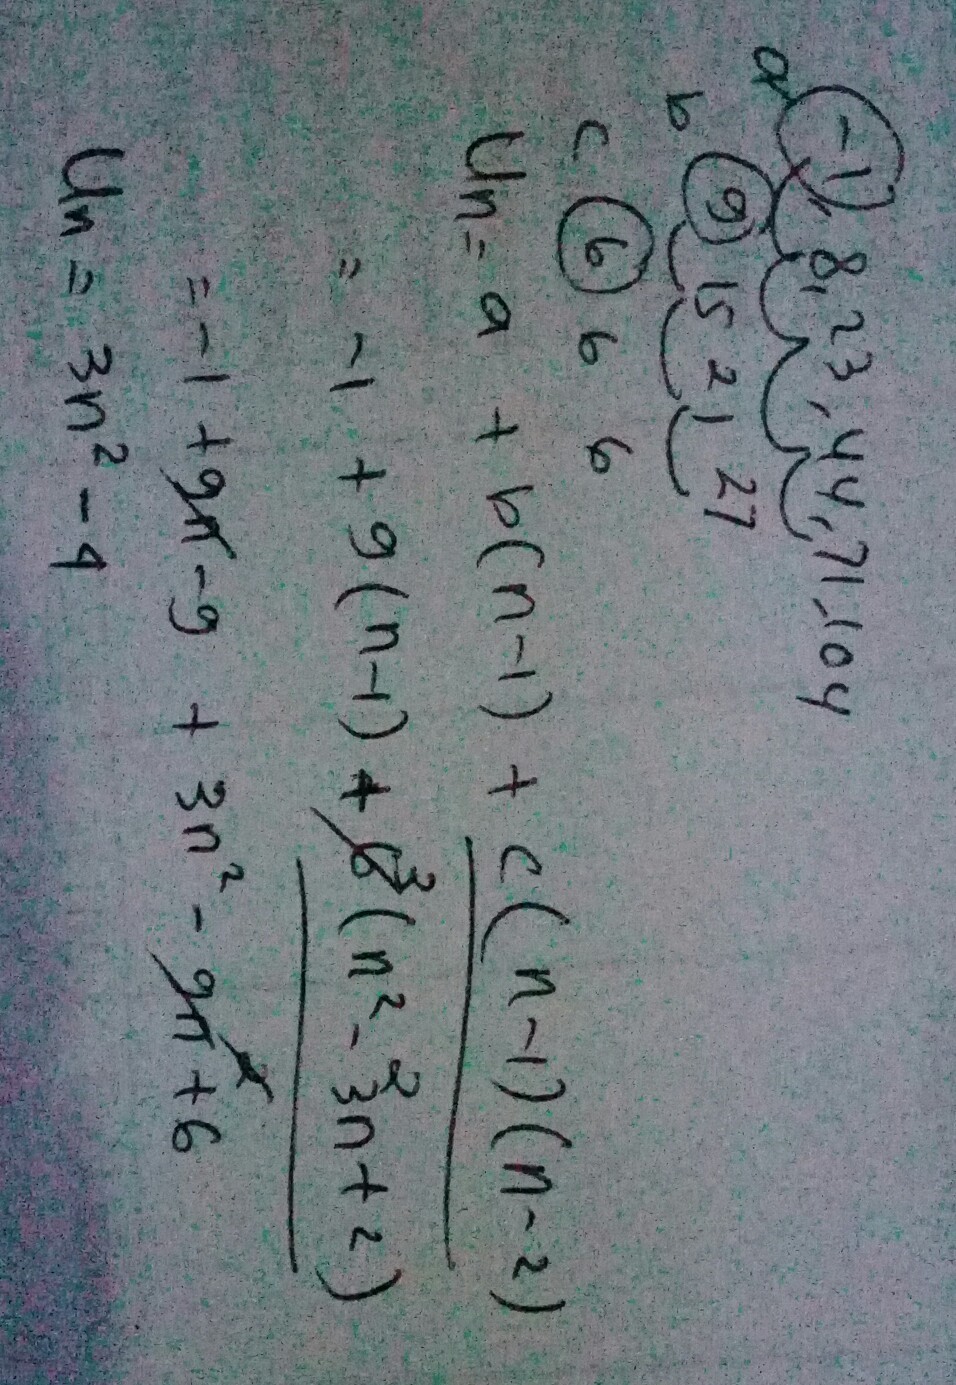 a -1, 8, 23, 44, 71, 104
b 9 15 21 27
c 6 6 6
Un = a + b(n-1) + c(n-1)(n-2)
2
= -1 + 9(n-1) + 6 3 (n² - 3n + 2)
2
= -1 + 9n - 9 + 3n² - 9n + 6
Un = 3n² - 4